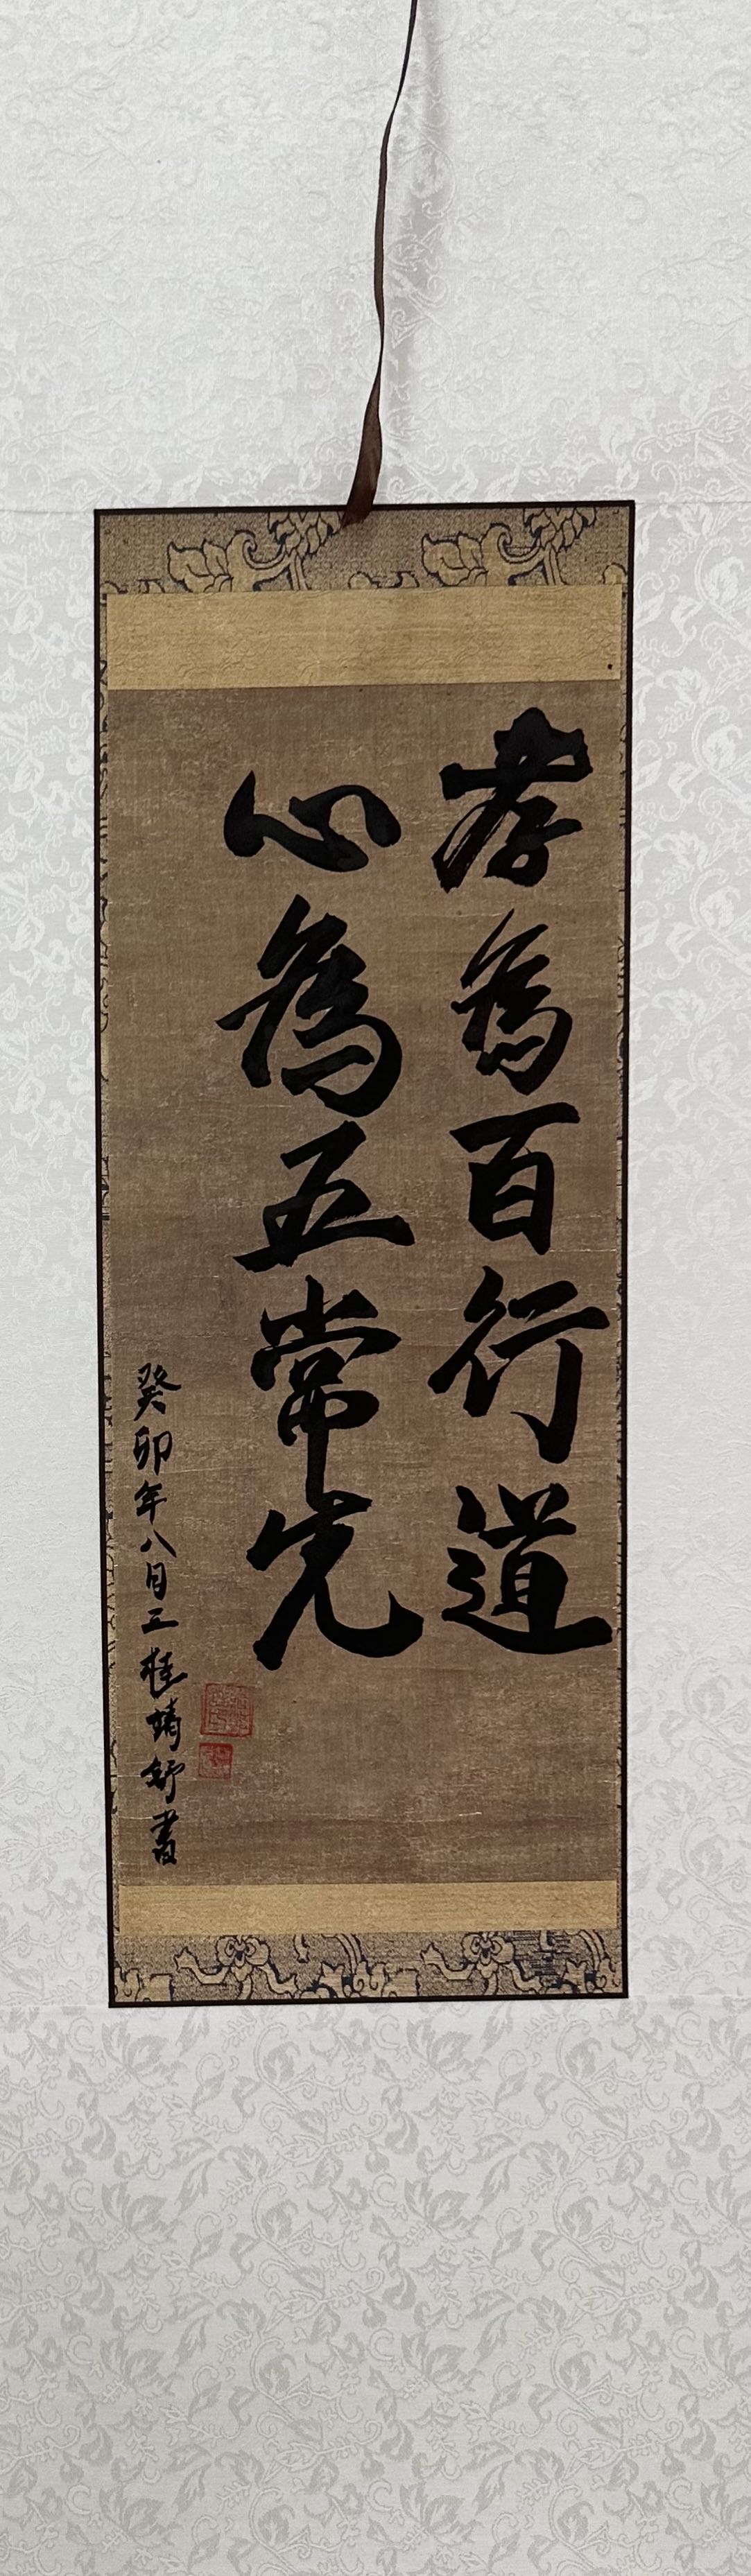 孝為百行道
心為五常先
癸卯年八月三桂靖舒書